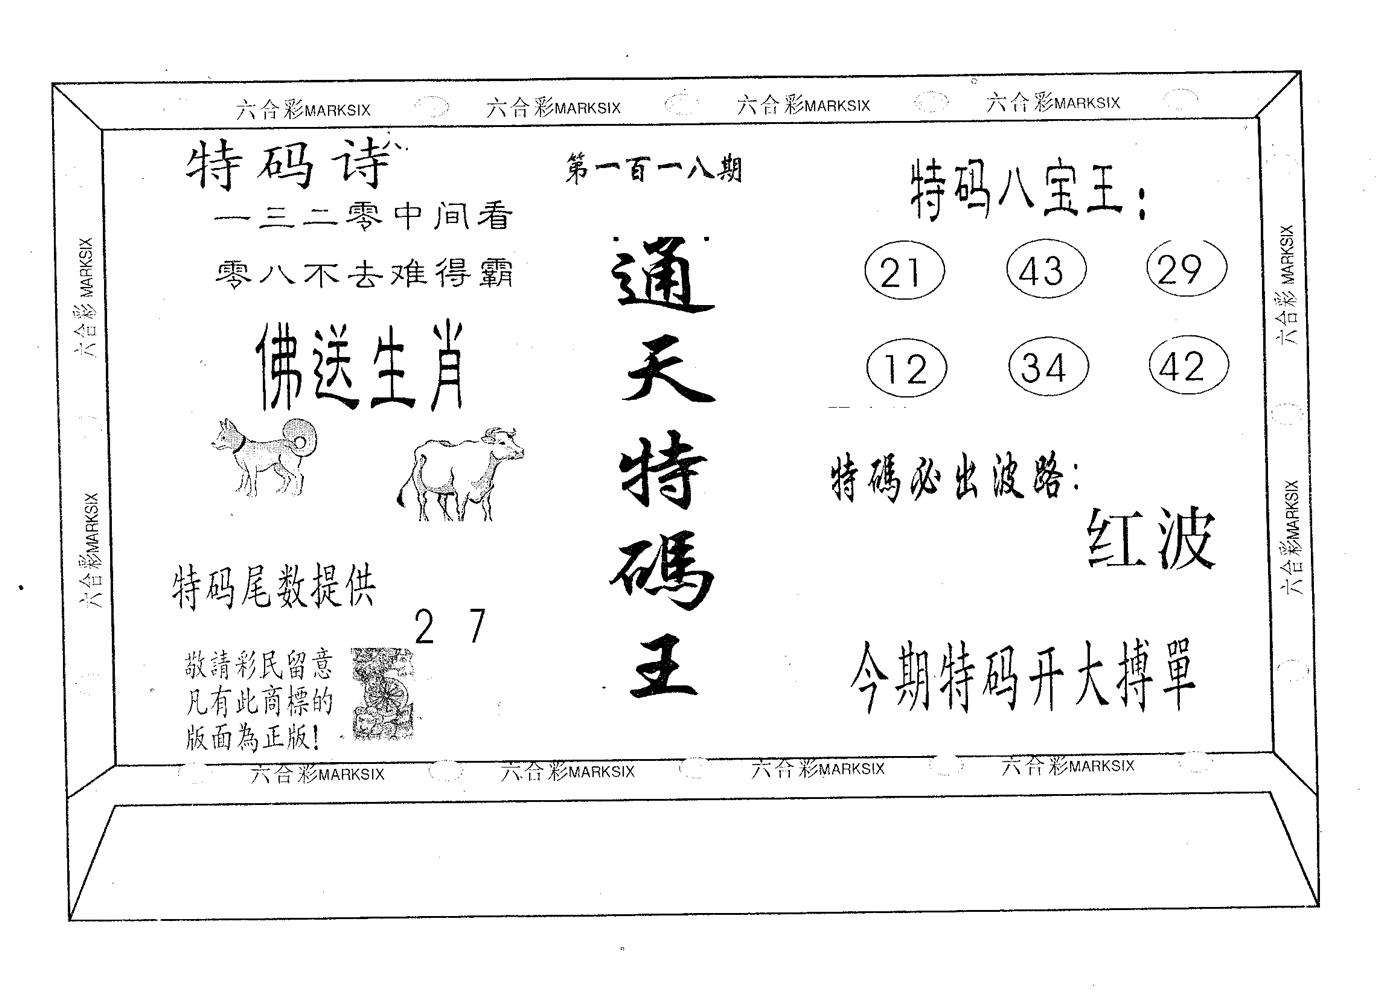 六合彩MARKSIX 六合彩MARKSIX 六合彩MARKSIX 六合彩MARKSIX
特码诗
一三二零中间看
零八不去难得霸
佛送生肖
特码尾数提供
2 7
敬請彩民留意
凡有此商標的
版面為正版!
第一百一八期
通天特碼王
特码八宝王:
21 43 29
12 34 42
特碼必出波路:
红波
今期特码开大搏單
六合彩MARKSIX
六合彩MARKSIX
六合彩MARKSIX
六合彩MARKSIX
六合彩MARKSIX 六合彩MARKSIX 六合彩MARKSIX 六合彩MARKSIX